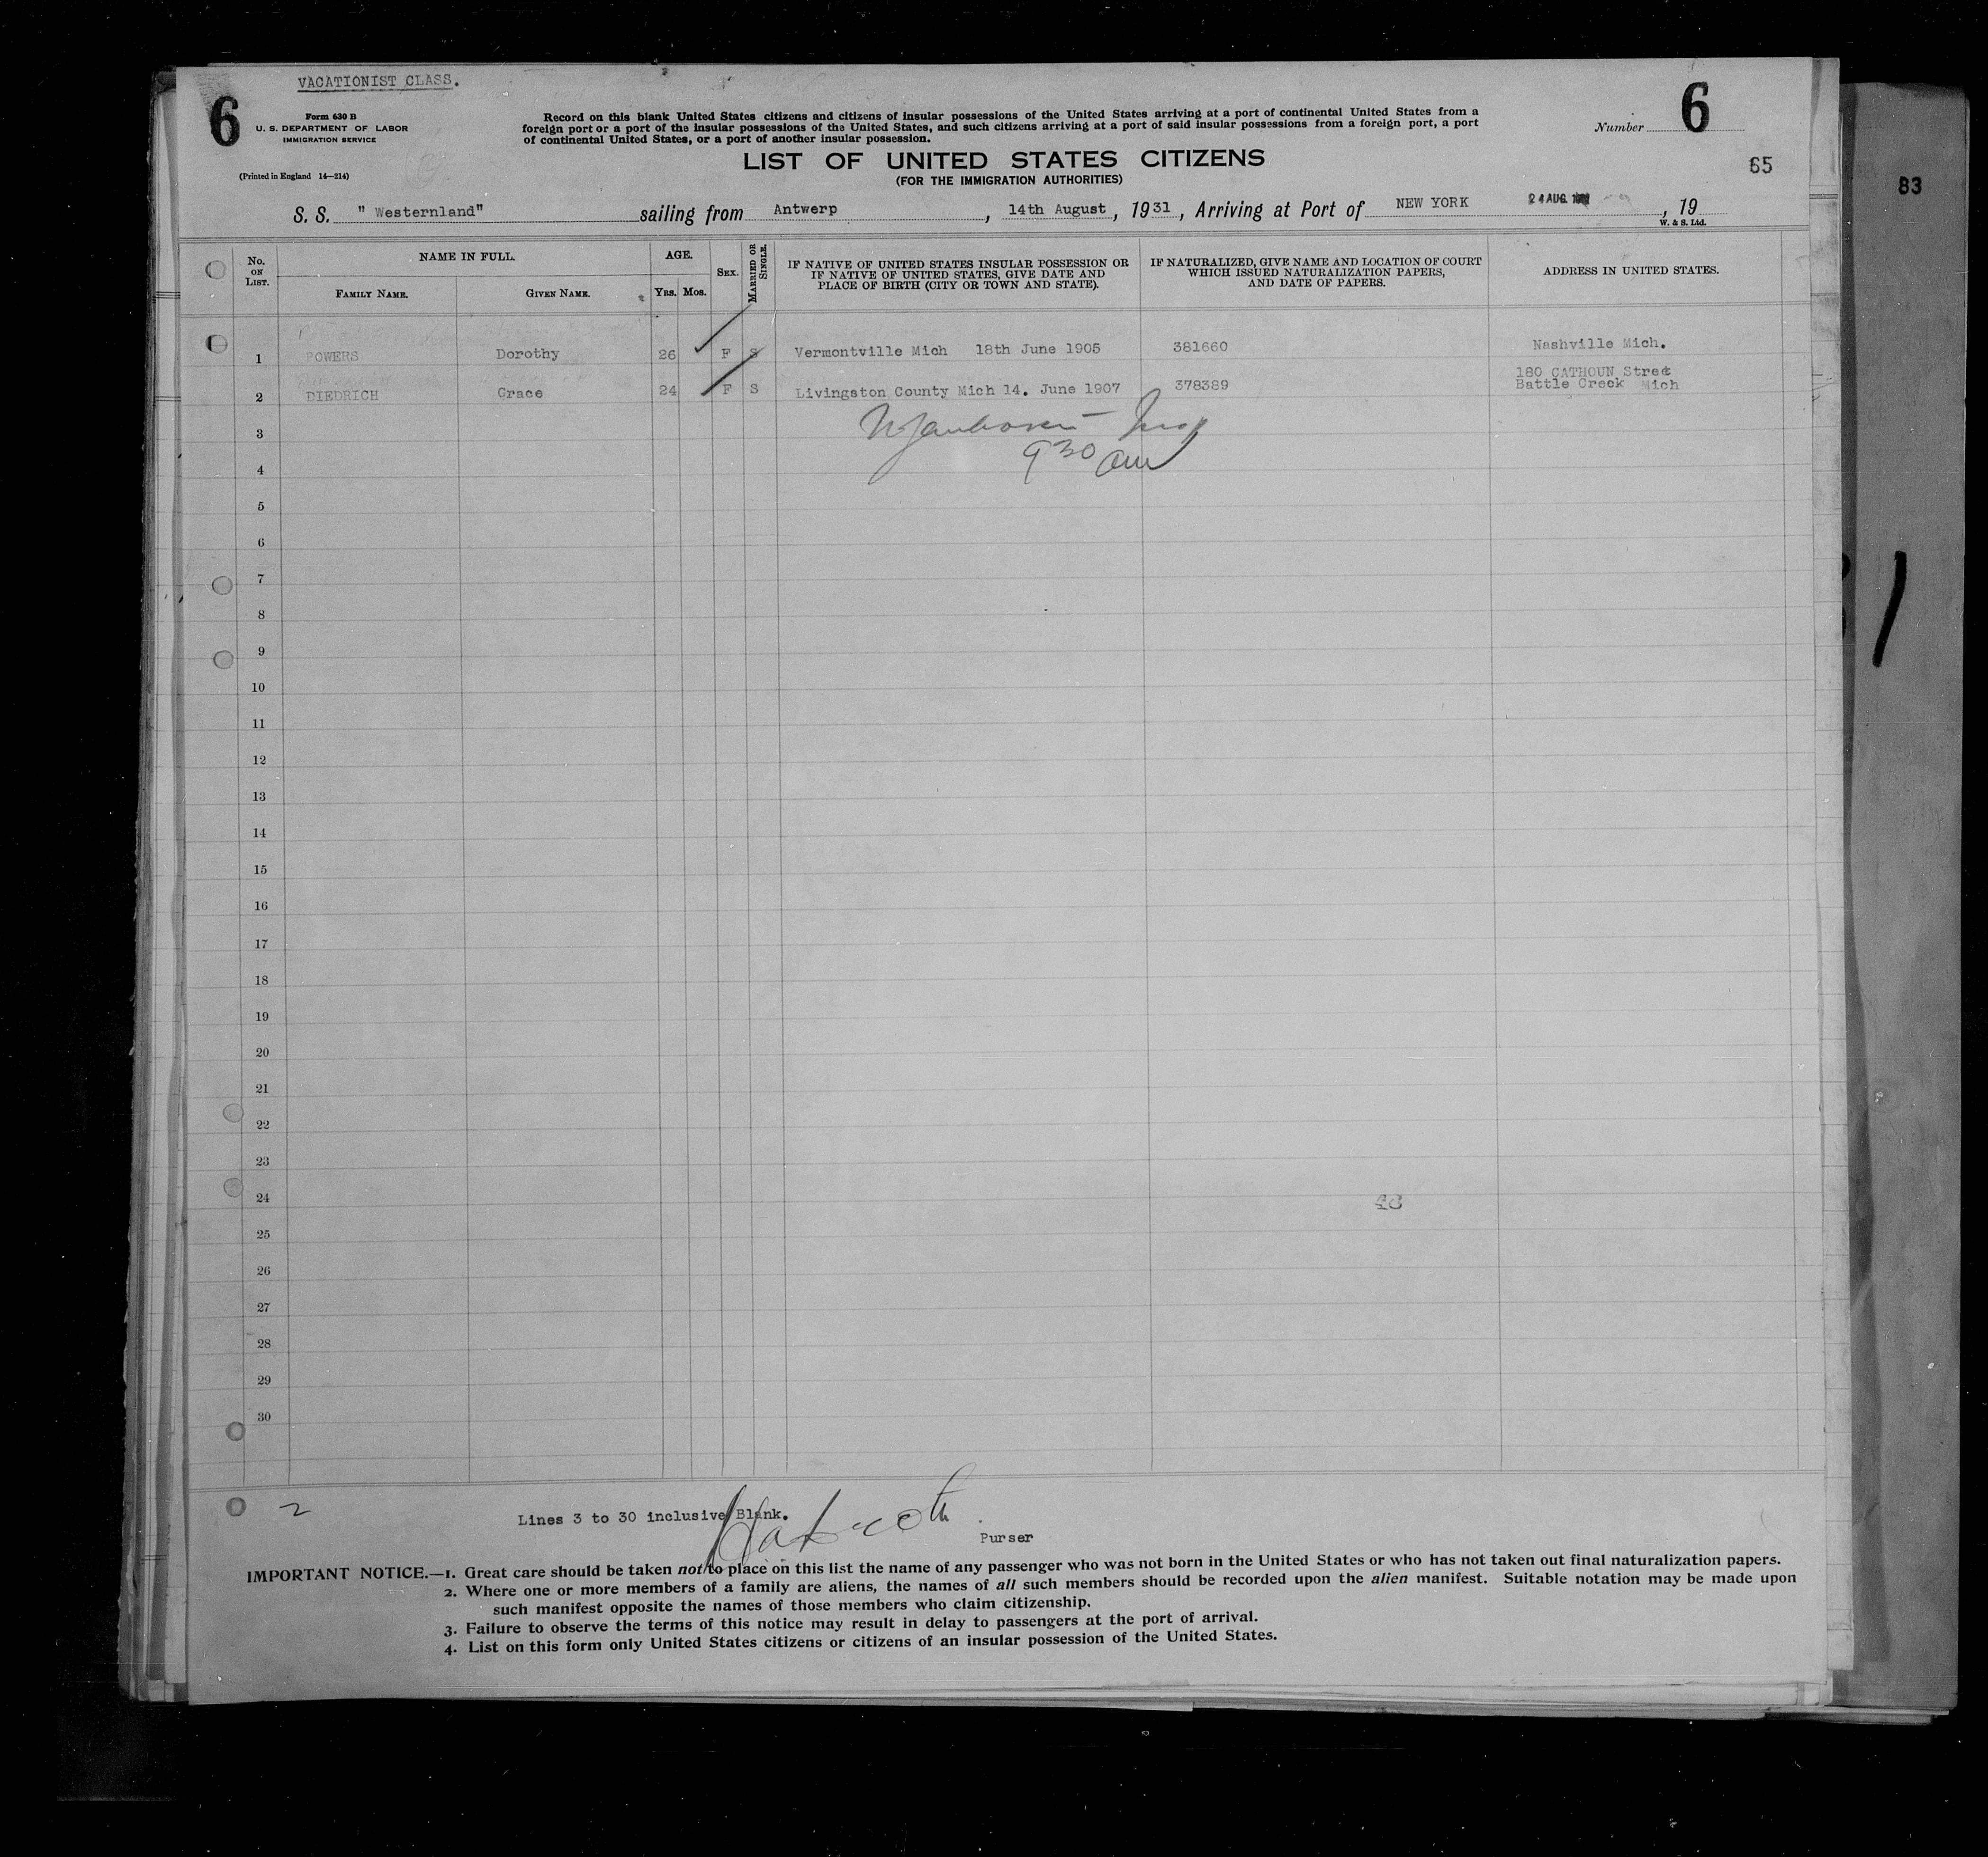 VACATIONIST CLASS.
6
Form 630 B
U. S. DEPARTMENT OF LABOR
IMMIGRATION SERVICE
(Printed in England 14—214)
Record on this blank United States citizens and citizens of insular possessions of the United States arriving at a port of continental United States from a
foreign port or a port of the insular possessions of the United States, and such citizens arriving at a port of said insular possessions from a foreign port, a port
of continental United States, or a port of another insular possession.
Number 6
LIST OF UNITED STATES CITIZENS
(FOR THE IMMIGRATION AUTHORITIES)
65
83
S. S. " Westernland" sailing from Antwerp, 14th August, 1931, Arriving at Port of NEW YORK 24 AUG, 19
W. & S. Ltd.
No. ON LIST.
NAME IN FULL.
FAMILY NAME.
GIVEN NAME.
AGE.
YRS. MOS.
SEX.
MARRIED OR SINGLE.
IF NATIVE OF UNITED STATES INSULAR POSSESSION OR
IF NATIVE OF UNITED STATES, GIVE DATE AND
PLACE OF BIRTH (CITY OR TOWN AND STATE).
IF NATURALIZED, GIVE NAME AND LOCATION OF COURT
WHICH ISSUED NATURALIZATION PAPERS,
AND DATE OF PAPERS.
ADDRESS IN UNITED STATES.
1 POWERS Dorothy 26 F S Vermontville Mich 18th June 1905 381660 Nashville Mich.
2 DIEDRICH Grace 24 F S Livingston County Mich 14. June 1907 378389 180 CATHOUN Street
Battle Creek Mich
3
9 30 am
4
5
6
7
8
9
10
11
12
13
14
15
16
17
18
19
20
21
22
23
24
25
26
27
28
29
30
2
Lines 3 to 30 inclusive Blank.
Purser
IMPORTANT NOTICE.—1. Great care should be taken not to place on this list the name of any passenger who was not born in the United States or who has not taken out final naturalization papers.
2. Where one or more members of a family are aliens, the names of all such members should be recorded upon the alien manifest. Suitable notation may be made upon
such manifest opposite the names of those members who claim citizenship.
3. Failure to observe the terms of this notice may result in delay to passengers at the port of arrival.
4. List on this form only United States citizens or citizens of an insular possession of the United States.